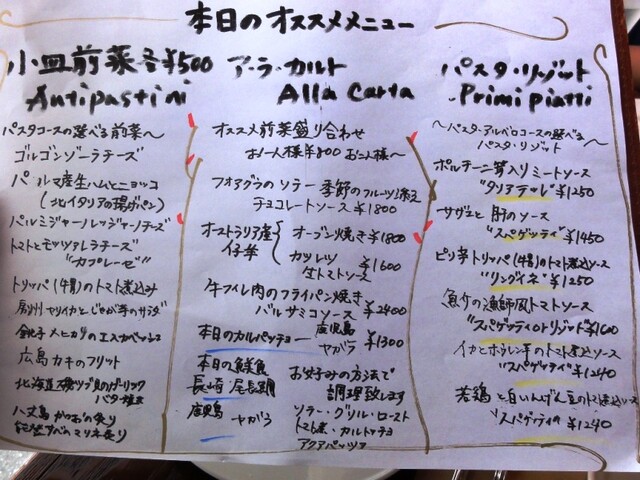 本日のオススメメニュー
小皿前菜各¥500
Antipastini
パスタコースの選べる前菜〜
ゴルゴンゾーラチーズ
パルマ産生ハムとニョッコ
(北イタリアの揚げパン)
パルミジャーノレッジャーノチーズ
トマトとモッツァレラチーズ
"カプレーゼ"
トリッパ(4胃)のトマト煮込み
房州ヤリイカとじゃが芋のサラダ
銚子メヒカリのエスカベーシュ
広島カキのフリット
北海道磯ツブ貝のガーリック
バター焼き
八丈島 かつおの炙り
マリネ炙り
ア・ラ・カルト
Alla Carta
オススメ前菜盛り合わせ
お一人様¥800 お二人様〜
フォアグラのソテー 季節のフルーツ添え
チョコレートソース ¥1800
オーストラリア産
仔羊
オーブン焼き ¥1800
カツレツ
生トマトソース ¥1600
牛フィレ肉のフライパン焼き
バルサミコソース ¥2400
本日のカルパッチョ
鹿児島
ヤガラ ¥1300
本日の鮮魚
長崎 尾長鯛
鹿児島 ヤガラ
お好みの方法で
調理致します
ソテー・グリル・ロースト
トマト煮・カルトッチョ
アクアパッツァ
パスタ・リゾット
Primi piatti
〜パスタ・アルベロコースの選べる
パスタ・リゾット
ポルチーニ茸入りミートソース
"タリアテッレ" ¥1250
サザエと肝のソース
"スパゲッティ" ¥1450
ピリ辛トリッパ(4胃)のトマト煮込ソース
"リングイネ" ¥1250
魚介の漁師風トマトソース
"スパゲッティorリゾット" ¥1600
イカとホウレン草のトマト煮込ソース
"スパゲッティ" ¥1240
若鶏と白いんげん豆のトマト煮込ソース
"スパゲッティ" ¥1240